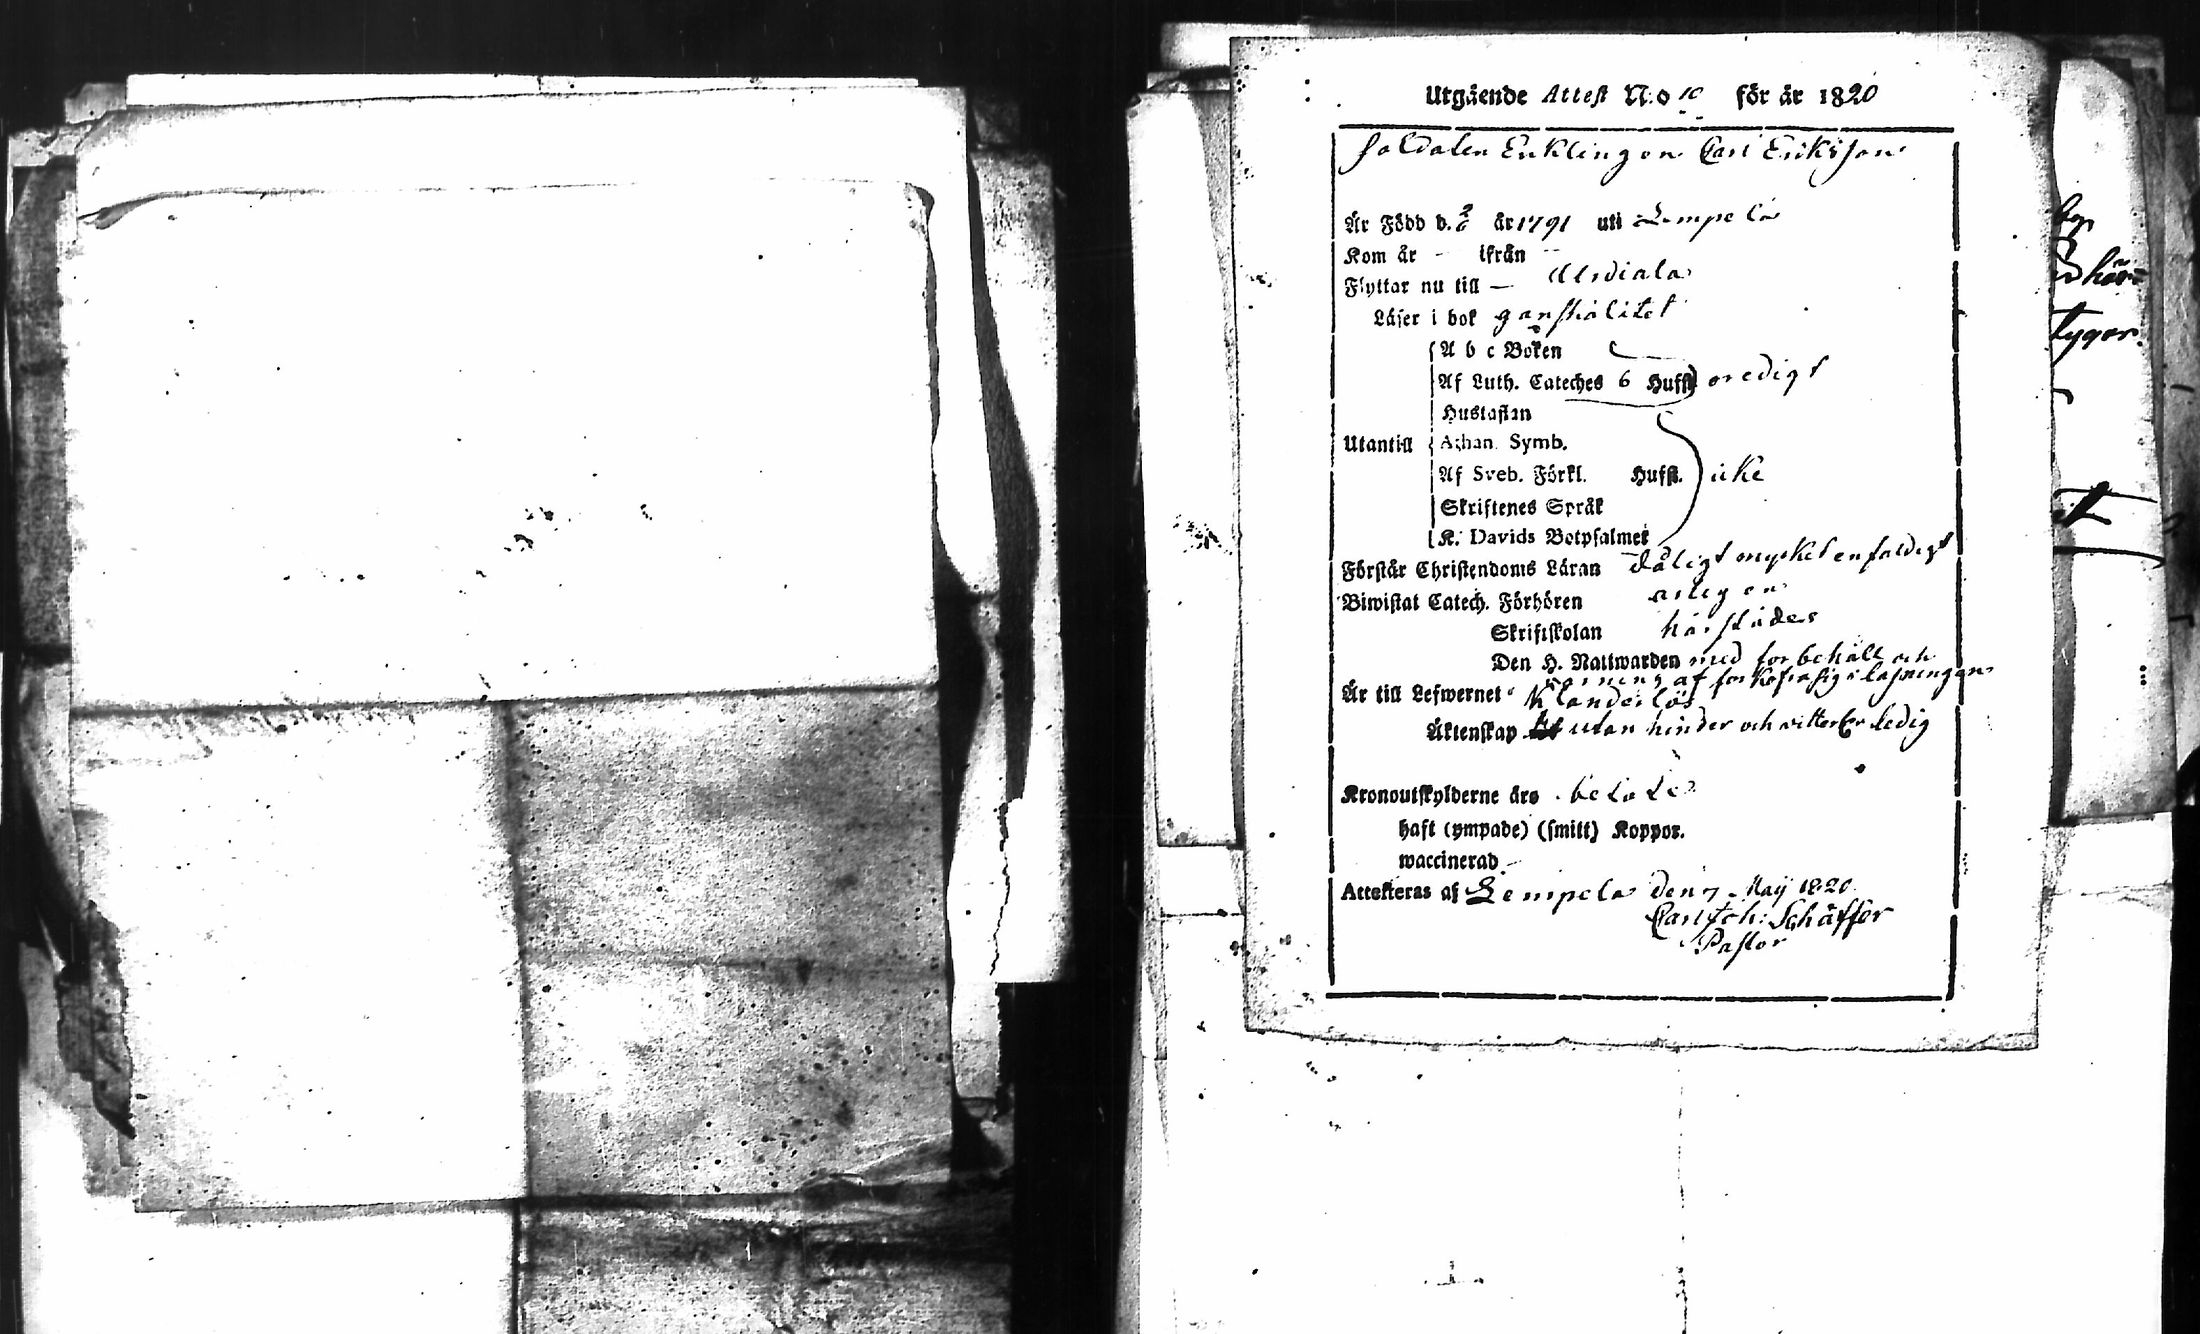 Utgående Attest N:o 10 för år 1820
Soldaten Enklingen Carl Eriksson
Är Född d. 2/6 år 1791 uti Lempela
Kom år - ifrån -
Flyttar nu till — Urdiala
Läser i bok ganska litet
A b c Boken
Af Luth. Cateches 6 Hufst. oredigt
Hustaflan
Utantill Athan. Symb.
Af Sveb. Förkl. Hufst. icke
Skriftenes Språk
K. Davids Botpsalmer
Förstår Christendoms Läran dåligt mycket enfaldigt
Biwistat Catech. Förhören
Skriftskolan härstädes
Den H. Nattwarden med förbehåll och
varning af
Är till Lefwernet klanderlös
Äktenskap utan hinder och ledig
Kronoutskylderne äro betalte
haft (ympade) (smitt) Koppor.
waccinerad -
Attesteras af Lempela den 7 Maij 1820
Carl Joh: Schäffer
Pastor
tygar